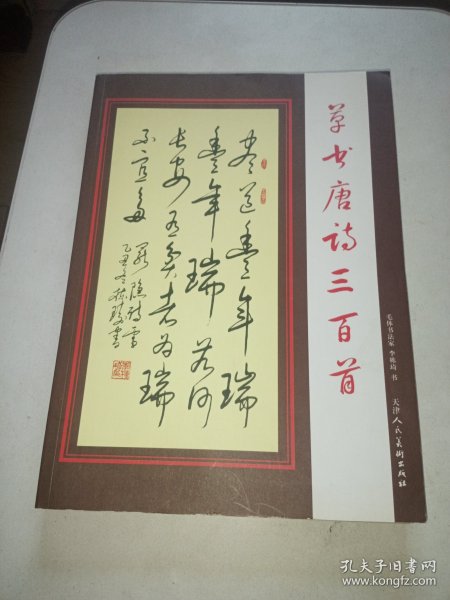 草书唐诗三百首
毛体书法家 李栋琦 书
天津人民美术出版社
尽道丰年瑞
丰年瑞若何
长安有贫者为瑞
不宜多
罗隐诗雪
孔夫子旧书网
www.kongfz.com